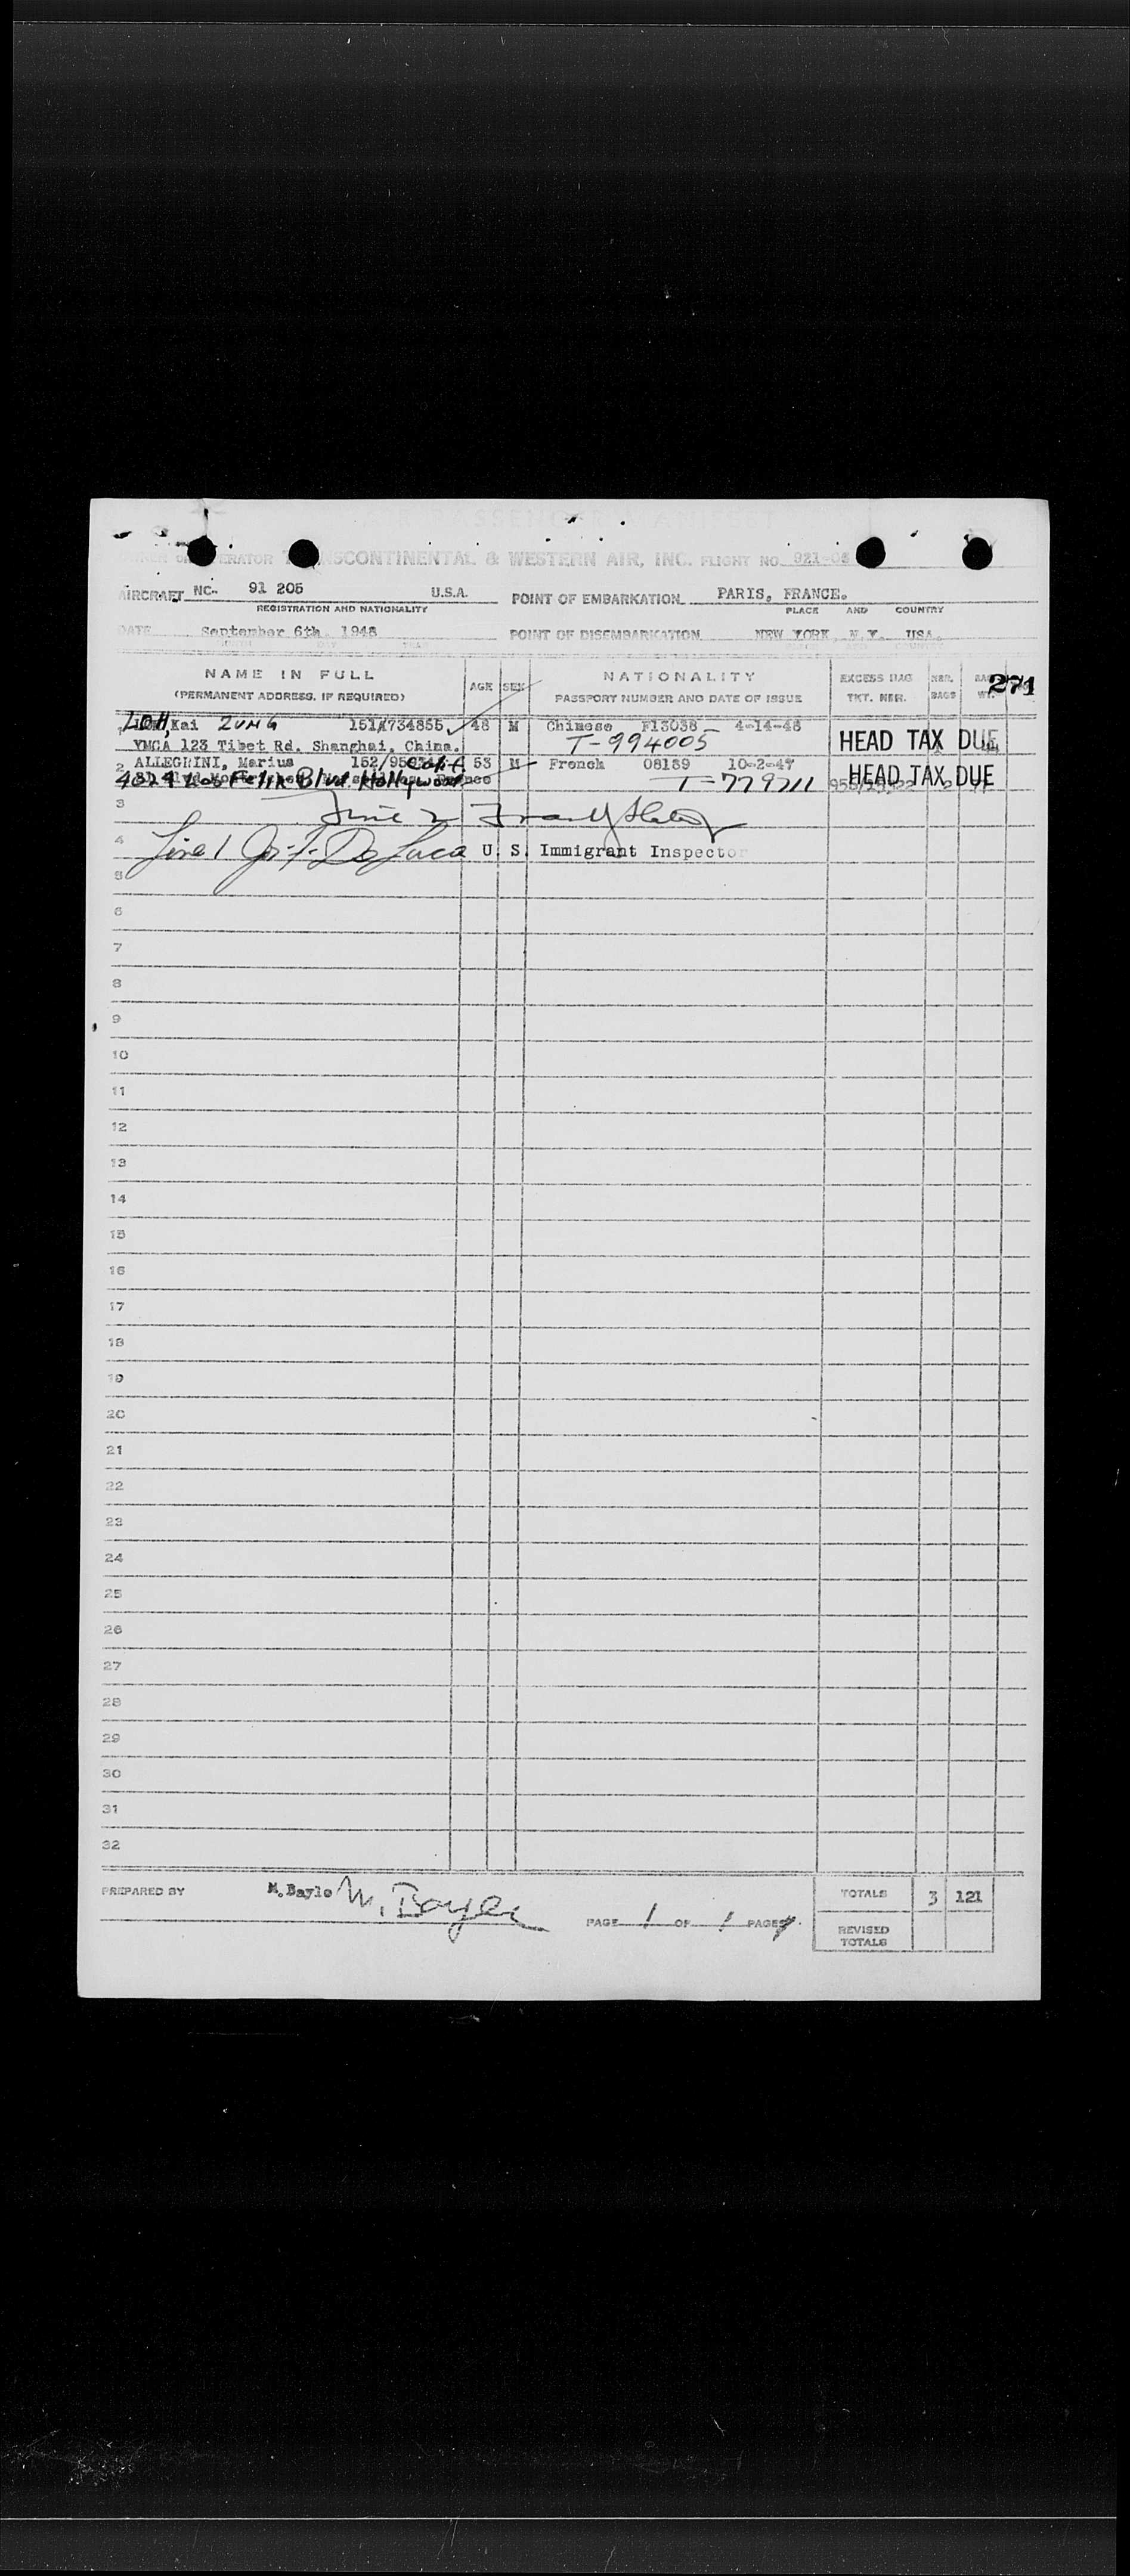 OPERATOR TRANSCONTINENTAL & WESTERN AIR, INC. FLIGHT NO. 921-05
AIRCRAFT NC- 91 205 U.S.A. POINT OF EMBARKATION PARIS, FRANCE.
REGISTRATION AND NATIONALITY PLACE AND COUNTRY
DATE September 6th, 1948 POINT OF DISEMBARKATION NEW YORK, N.Y. USA.
NAME IN FULL AGE SEX NATIONALITY EXCESS BAG NBR.
(PERMANENT ADDRESS, IF REQUIRED) PASSPORT NUMBER AND DATE OF ISSUE TKT. NBR. BAGS WT. 271
LOH, Kai ZUNG 151/734855 48 M Chinese F13038 4-14-48
YMCA 123 Tibet Rd. Shanghai, China. T-994005 HEAD TAX DUE
2 ALLEGRINI, Marius 152/95 Calif 53 M French 08159 10-2-47
Los Feliz Blvd Hollywood T-779711 HEAD TAX DUE
3 Line 2
4 Line 1 De Luca U. S. Immigrant Inspector
5
6
7
8
9
10
11
12
13
14
15
16
17
18
19
20
21
22
23
24
25
26
27
28
29
30
31
32
PREPARED BY M. Bayle M. Bayle TOTALS 3 121
PAGE 1 OF 1 PAGES
REVISED
TOTALS